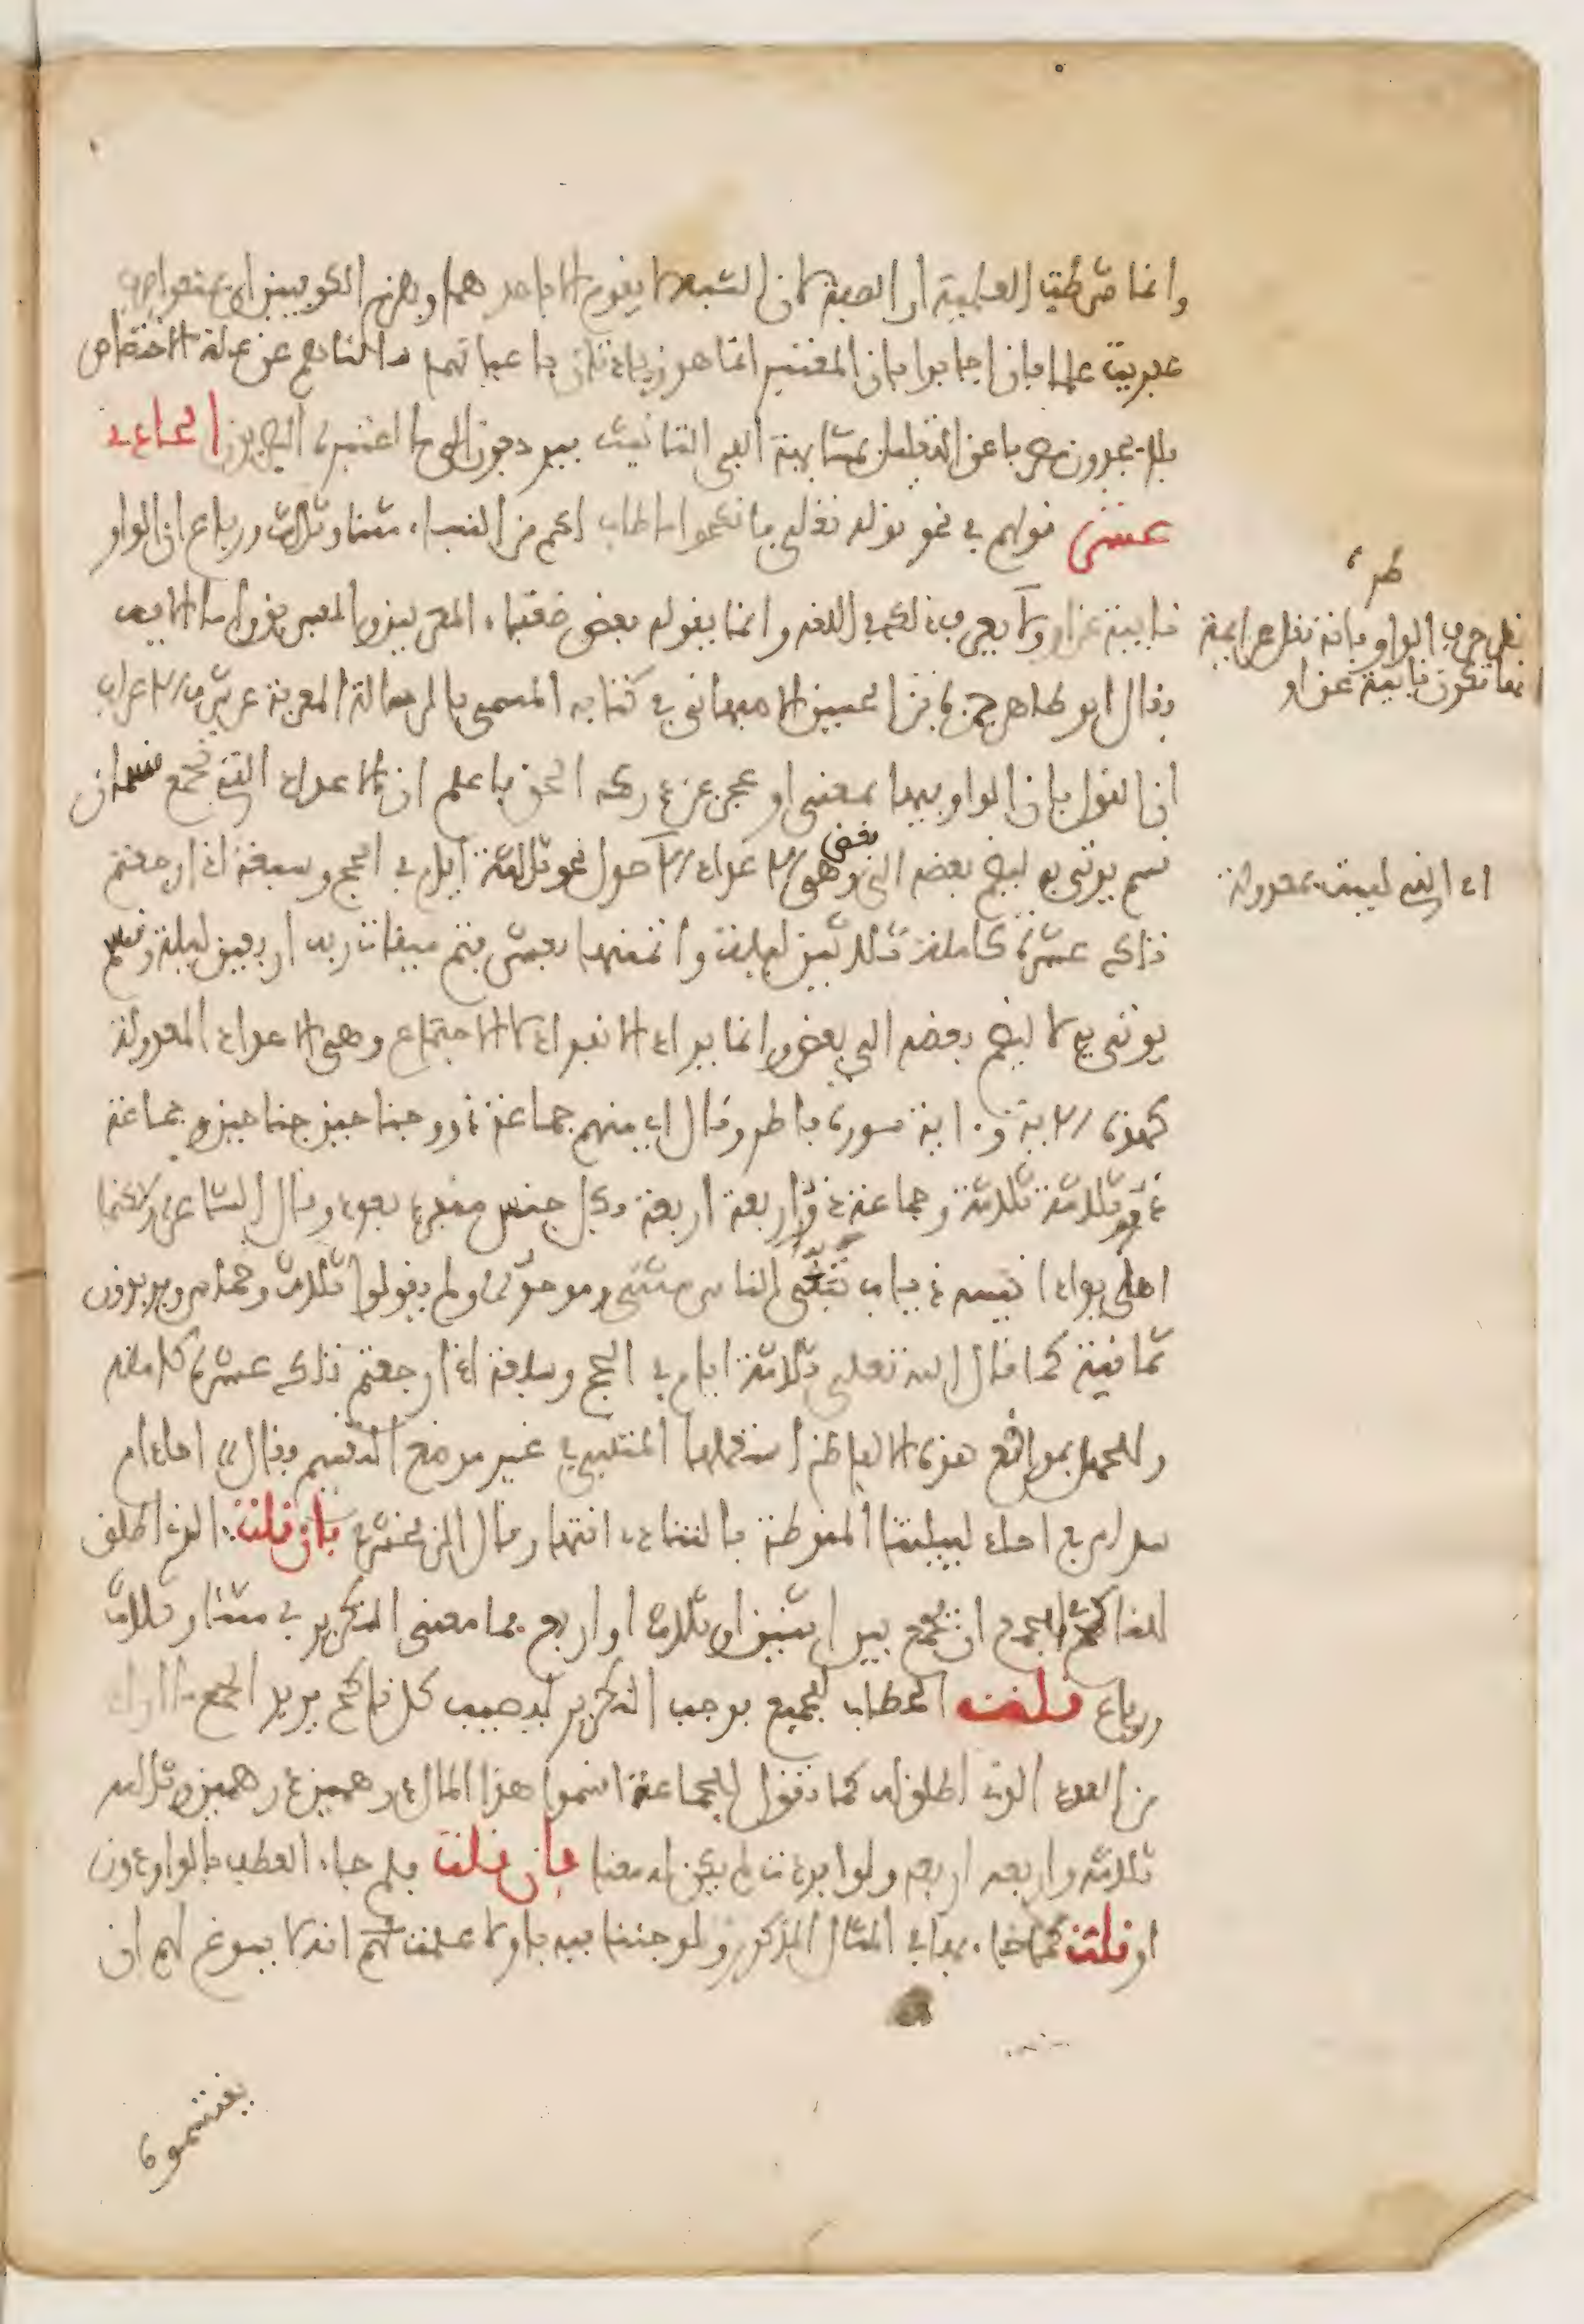 وانما شرطت العلمية او الصفة لان الشبه لا يقوم الا باحدهما ويلزم الكوفيين ان يمنعوا صرف
عفريت علما فان اجابوا بان المعتبر انما هو زيادتان باعيانهما سالناهم عن علة الاختصاص
فلا يجدون مصرفا عن التعليل بمشابهة الفي التانيث فيرجعون الى ما اعتبره البصريون الحادي
عشر قولهم في نحو قوله تعلى فانكحوا ما طاب لكم من النساء مثنا وثلاث ورباع ان الواو
نايبة عن او ولا يعرف ذلك في اللغة وانما يقوله بعض ضعفاء المعربين والمفسرين واما الاية
فقال ابو طاهر حمزة بن الحسين الاصبهاني في كتابه المسمى بالرسالة المعربة عن شرف الاعراب
ان القول بان الواو فيها بمعنى او عجز عن درك الحق فاعلم ان الاعداد التي تجمع قسمان
قسم يوتى به ليضم بعضه الى بعض وهو الاعداد الاصول نحو ثلاثة ايام في الحج وسبعة اذا رجعتم
تلك عشرة كاملة ثلاثين ليلة واتممنها بعشر فتم ميقات ربه اربعين ليلة وقسم
يوتى به لا ليضم بعضه الى بعض وانما يراد الانفراد لا الاجتماع وهي الاعداد المعدولة
كهذه الاية واية سورة فاطر وقال اي منهم جماعة ذوو جناحين جناحين وجماعة
ذوو ثلاثة ثلاثة وجماعة ذوو اربعة اربعة وكل جنس مفرد بعدد وقال الشاعر ولاكنما
اهلي بواد انيسه ذياب تبغى الناس مثنى وموحد ولم يقولوا ثلاث وخماس ويريدون
ثمانية كما قال الله تعلى ثلاثة ايام في الحج وسبعة اذا رجعتم تلك عشرة كاملة
وللجهل بمواقع هذه الالفاظ استعملها المتنبي في غير موضع التقسيم فقال احاد ام
سداس في احاد لييلتنا المنوطة بالتناد انتهى وقال الزمخشري فان قلت الذي اطلق
للناكح في الجمع ان يجمع بين اثنين او ثلاث او اربع فما معنى التكرير في مثنا وثلاث
ورباع قلت الخطاب للجميع فوجب التكرير ليصيب كل ناكح يريد الجمع ما اراد
من العدد الذي اطلق له كما تقول للجماعة اقسموا هذا المال درهمين درهمين وثلاثة
ثلاثة واربعة اربعة ولو افردت لم يكن له معنا فان قلت فلم جاء العطف بالواو دون
او قلت كما جاء بها في المثال المذكور ولو جئنا فيه باو لاعلمت انه لا يسوغ لهم ان
يقتسموه
طرة
نقل حرف الواو بانة نقل عن ايمة
انها تكون نايبة عن او
اي التي ليست بمعدولة